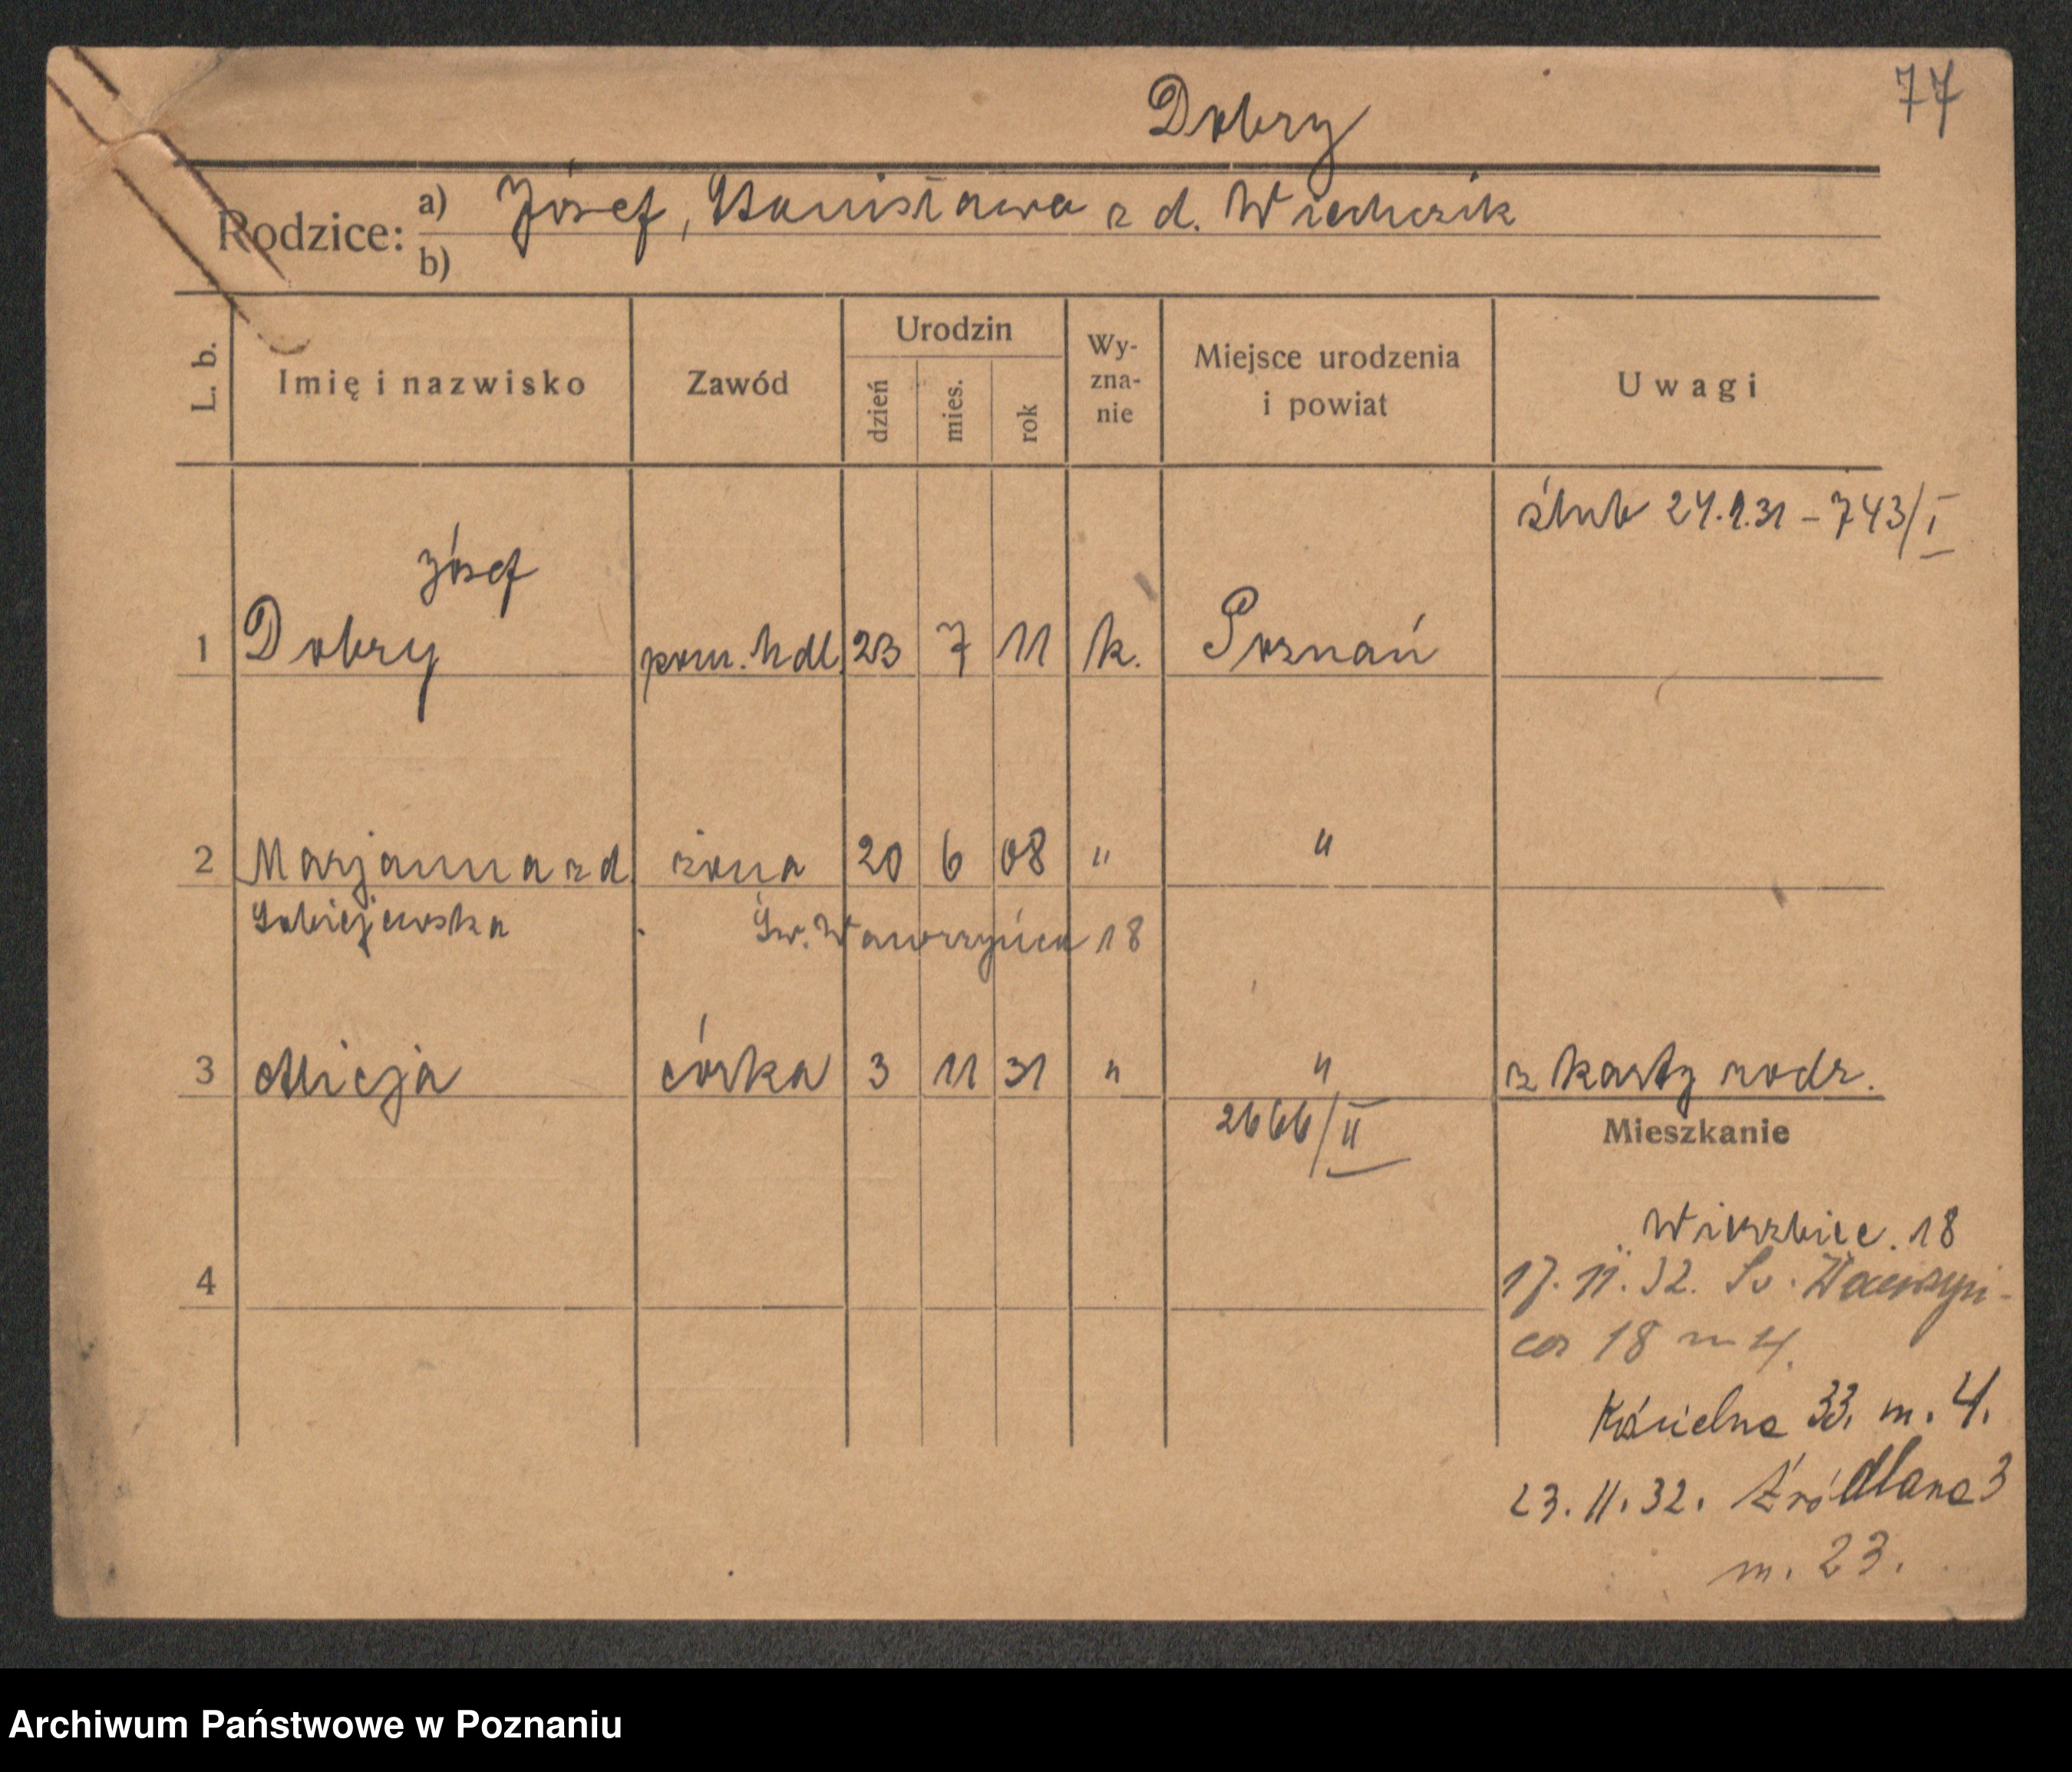 77
Dobry
Rodzice: a) Józef, Stanisława z d. Wiechczik
b)
L. b. Imię i nazwisko Zawód Urodzin dzień mies. rok Wy-zna-nie Miejsce urodzenia i powiat Uwagi
ślub 24.1.31 – 743/I
Józef
1 Dobry pom. hdl. 23 7 11 k. Poznań
2 Marjanna z d. żona 20 6 08 " "
Św. Wawrzyńca 18
3 Alicja córka 3 11 31 " " z karty rodz.
2666/II
Mieszkanie
Wierzbięc. 18
4
17. 11. 32. Św. Wawrzyń-
ca 18 m 4.
Kościelna 33. m. 4.
23. 11. 32. Źródlana 3
m. 23.
Archiwum Państwowe w Poznaniu